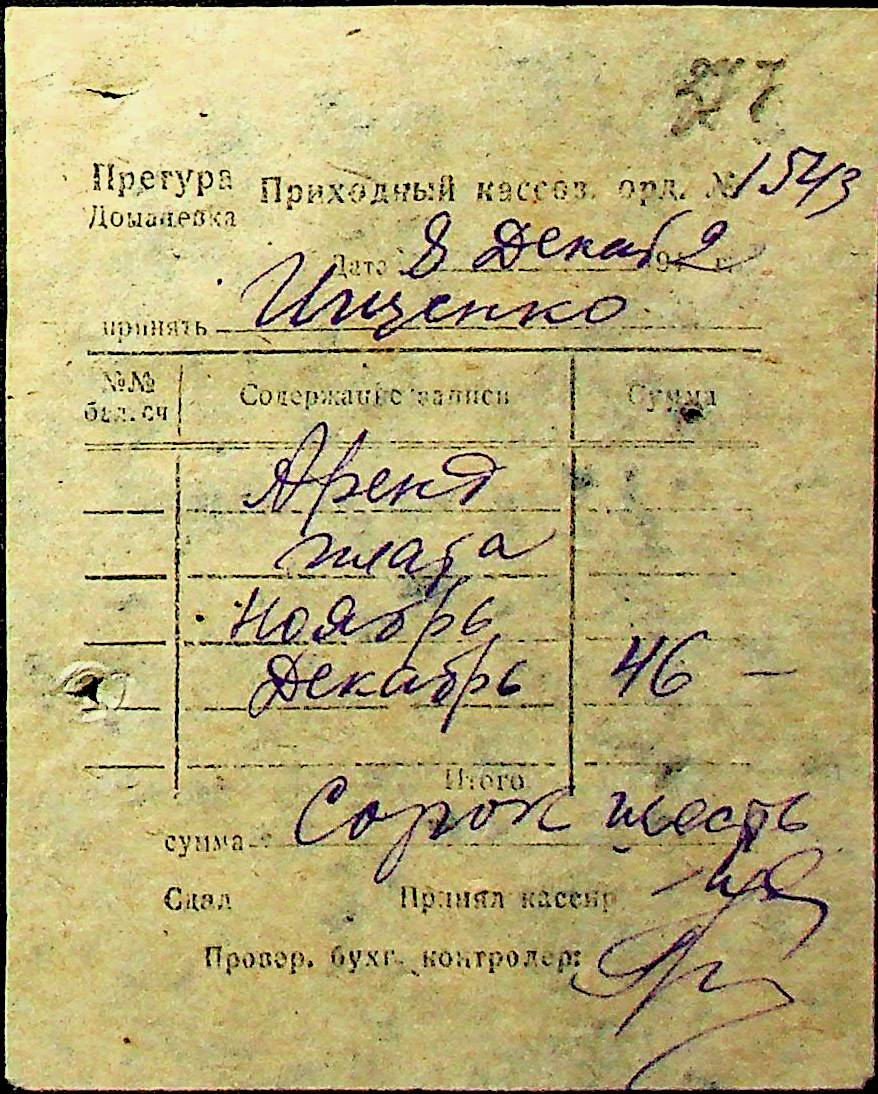 277
Претура Приходный кассов. орд. № 1543
Доманевка
Дата 8 Декаб 2 г.
принять Ищенко
№№ Содержание записи Сумма
бал. сч
Аренд
плата
Ноябрь
Декабрь 46 —
Итого
сумма Сорок шесть
Сдал Принял кассир
Провер. бухг. контролер: